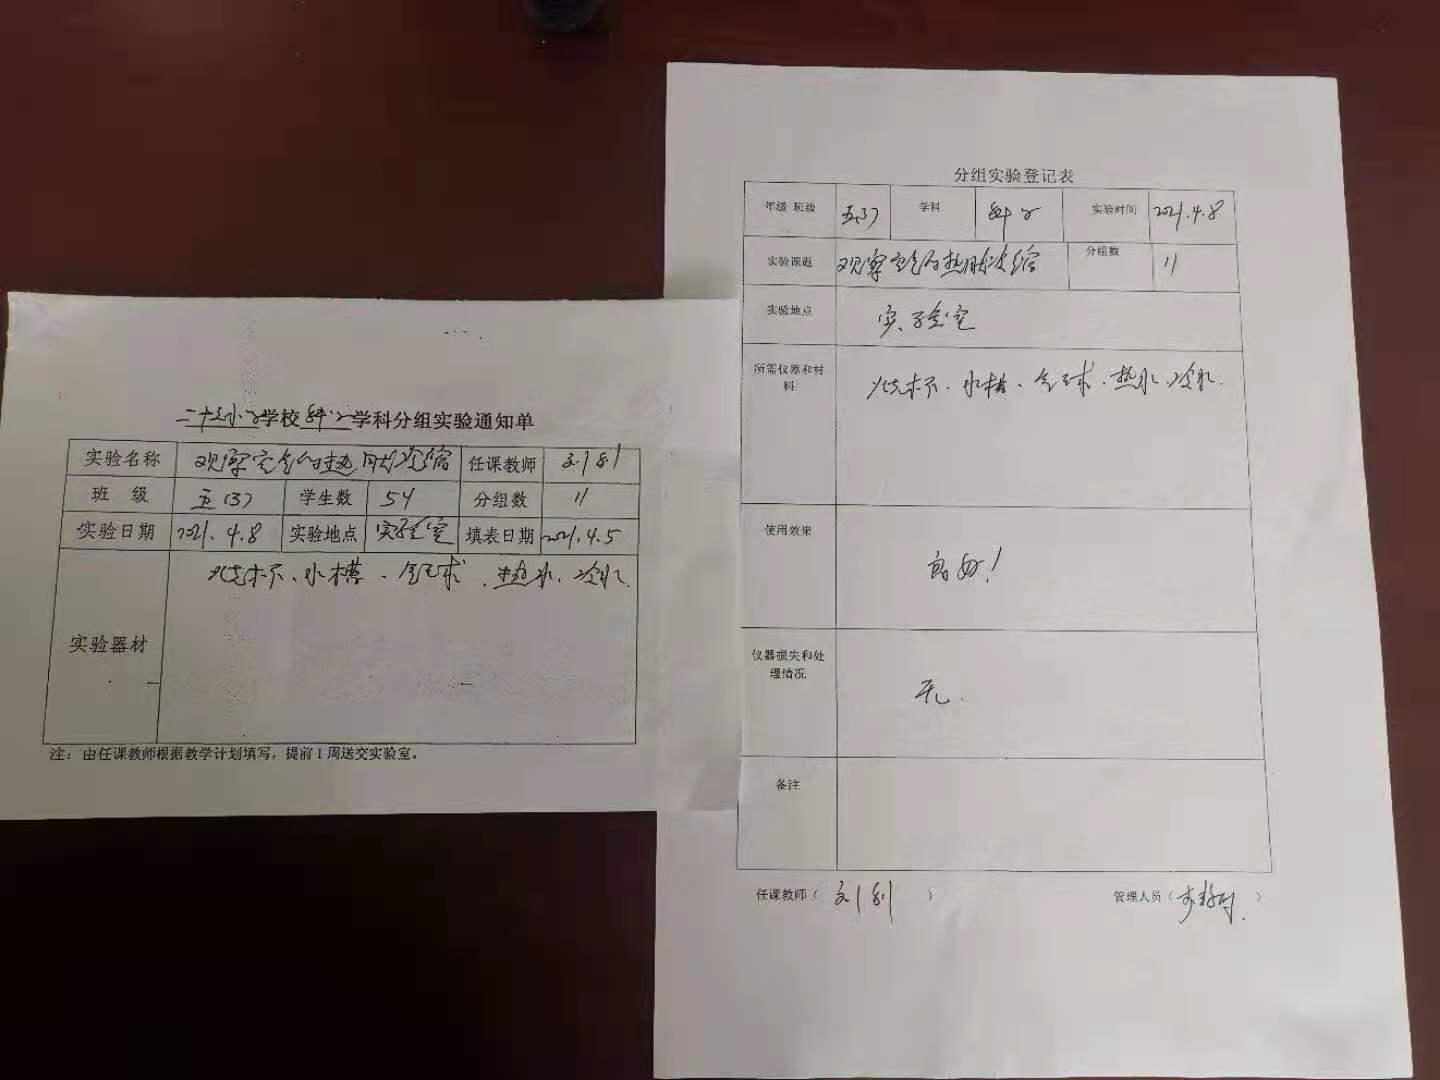 二十三小学学校科学学科分组实验通知单
实验名称 观察空气的热胀冷缩 任课教师
班 级 五(3) 学生数 54 分组数 11
实验日期 2021.4.8 实验地点 实验室 填表日期 2021.4.5
实验器材 烧杯、水槽、气球、热水、冷水
注:由任课教师根据教学计划填写,提前1周送交实验室。
分组实验登记表
年级 班级 五(3) 学科 科学 实验时间 2021.4.8
实验课题 观察空气的热胀冷缩 分组数 11
实验地点 实验室
所需仪器和材料 烧杯、水槽、气球、热水、冷水.
使用效果 良好!
仪器损失和处理情况 无.
备注
任课教师( ) 管理人员( )